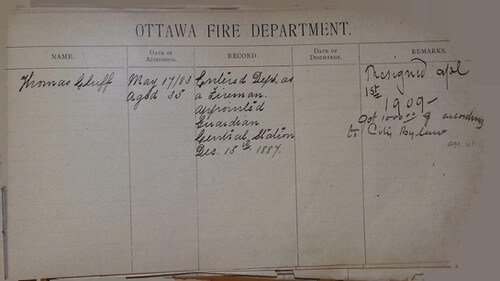 OTTAWA FIRE DEPARTMENT.
NAME.
DATE OF
ADMISSION.
RECORD.
DATE OF
DISCHARGE.
REMARKS.
Thomas Cluff
May 17/83
Aged 35
Entered Dept. as
a Fireman.
Appointed
Guardian
Central Station
Dec. 15th, 1887.
Resigned apl
1st
1909-
Got 1000.00 according
to City Bylaw
age 61